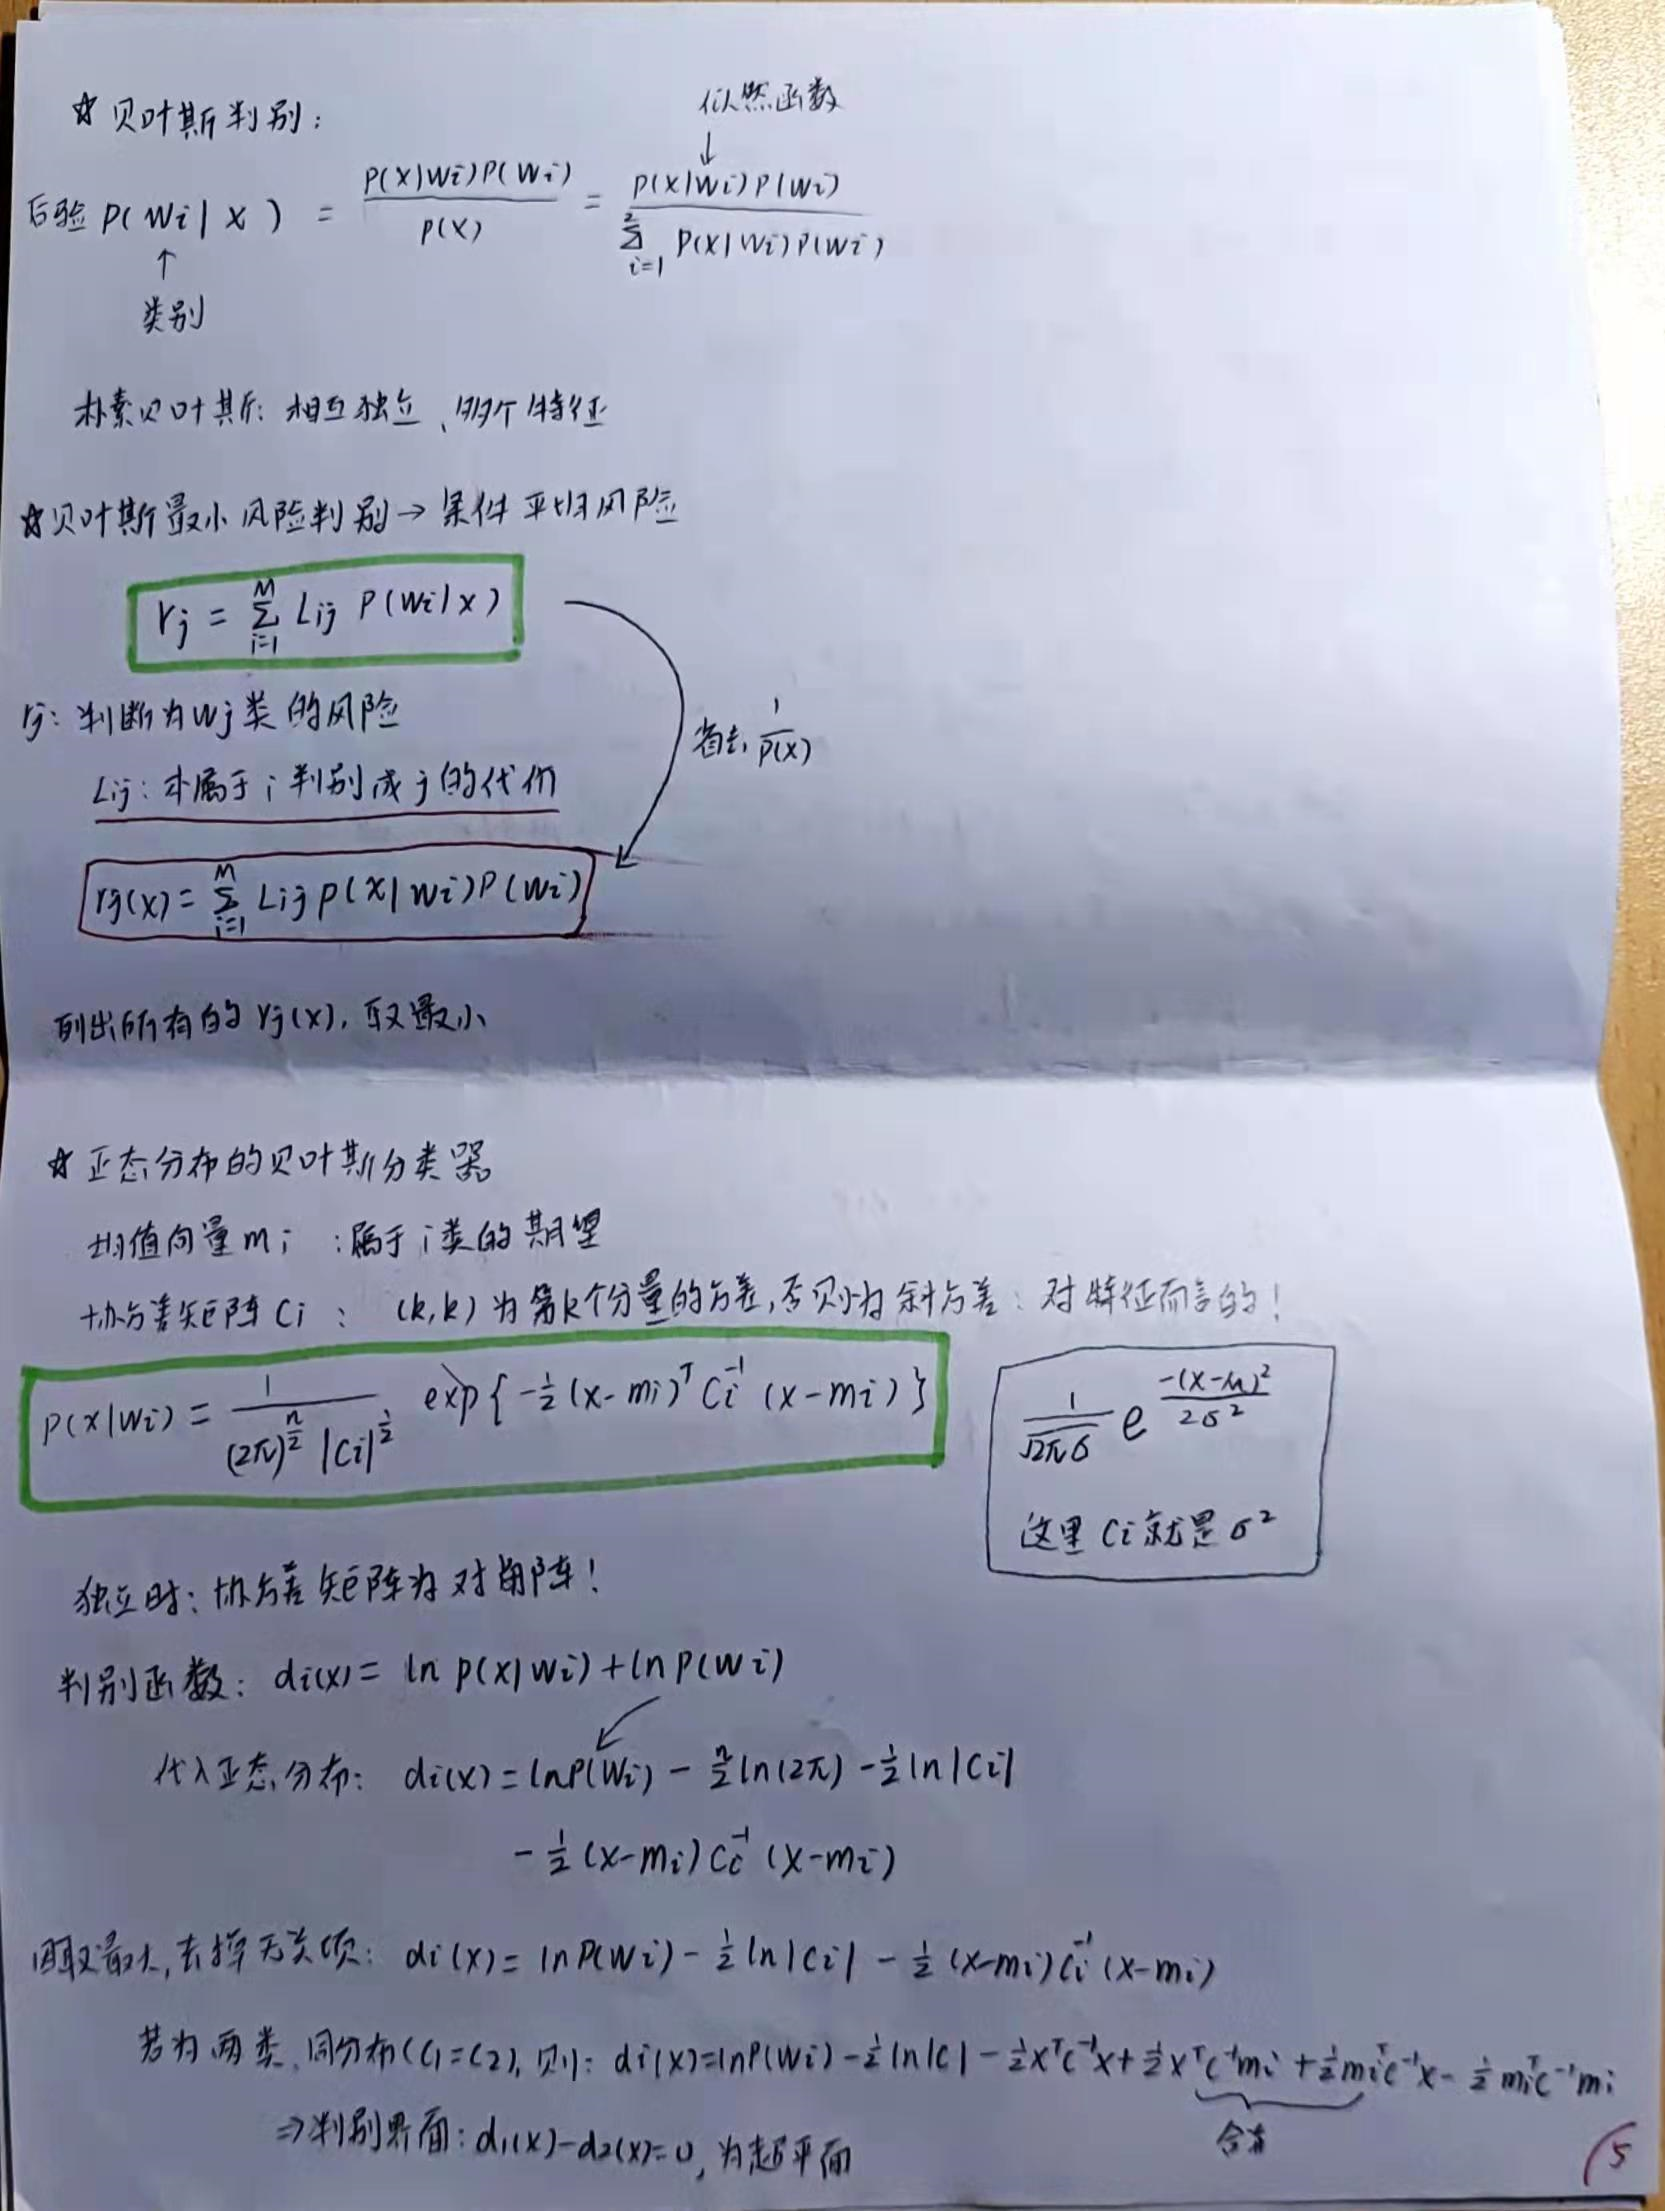 ☆贝叶斯判别:
似然函数
↓
后验 P(Wi|X) = P(X|Wi)P(Wi) / P(X) = P(X|Wi)P(Wi) / Σ_{i=1}^{2} P(X|Wi)P(Wi)
↑
类别
朴素贝叶斯: 相互独立、的个特征
☆贝叶斯最小风险判别→条件平均风险
rj = Σ_{i=1}^{M} Lij P(Wi|x)
rj: 判断为Wj类的风险
省去 1/P(X)
Lij: 本属于i判别成j的代价
rj(X) = Σ_{i=1}^{M} Lij P(X|Wi)P(Wi)
列出所有的rj(x),取最小
☆正态分布的贝叶斯分类器
均值向量mi :属于i类的期望
协方差矩阵Ci : (k,k)为第k个分量的方差,否则为斜方差: 对特征而言的!
P(X|Wi) = 1 / ((2π)^{n/2} |Ci|^{1/2}) exp{-½(x-mi)^T Ci^{-1} (x-mi)}
1/√2πσ e^{-(x-μ)²/2σ²}
这里Ci就是σ²
独立时: 协方差矩阵为对角阵!
判别函数: di(x) = ln P(X|Wi) + ln P(Wi)
代入正态分布: di(x) = lnP(Wi) - n/2 ln(2π) - ½ ln|Ci|
- ½ (x-mi) Ci^{-1} (x-mi)
因取最大,去掉无关项: di(x) = ln P(Wi) - ½ ln|Ci| - ½ (x-mi) Ci^{-1} (x-mi)
若为两类,同分布(C1=C2),则: di(x)=lnP(Wi) - ½ ln|C| - ½ x^T C^{-1} x + ½ x^T C^{-1} mi + ½ mi^T C^{-1} x - ½ mi^T C^{-1} mi
⇒判别界面: d1(x)-d2(x)=0, 为超平面
5